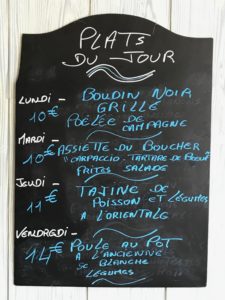 PLATS
DU JOUR
LUNDI - BOUDIN NOIR
10€ GRILLÉ
POÊLÉE DE
CAMPAGNE
MARDI -
10€ ASSIETTE DU BOUCHER
"CARPACCIO - TARTARE DE BOEUF
FRITES SALADE
JEUDI - TAJINE DE
11€ POISSON ET LÉGUMES
A L'ORIENTALE
VENDREDI -
14€ POULE AU POT
A L'ANCIENNE
SCE BLANCHE
LÉGUMES